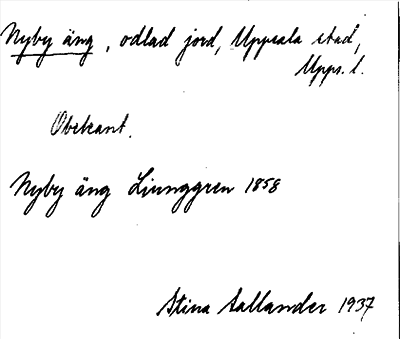 Nyby äng, odlad jord, Uppsala stad,
Upps. l.
Obekant.
Nyby äng Ljunggren 1858
Stina Sallander 1937